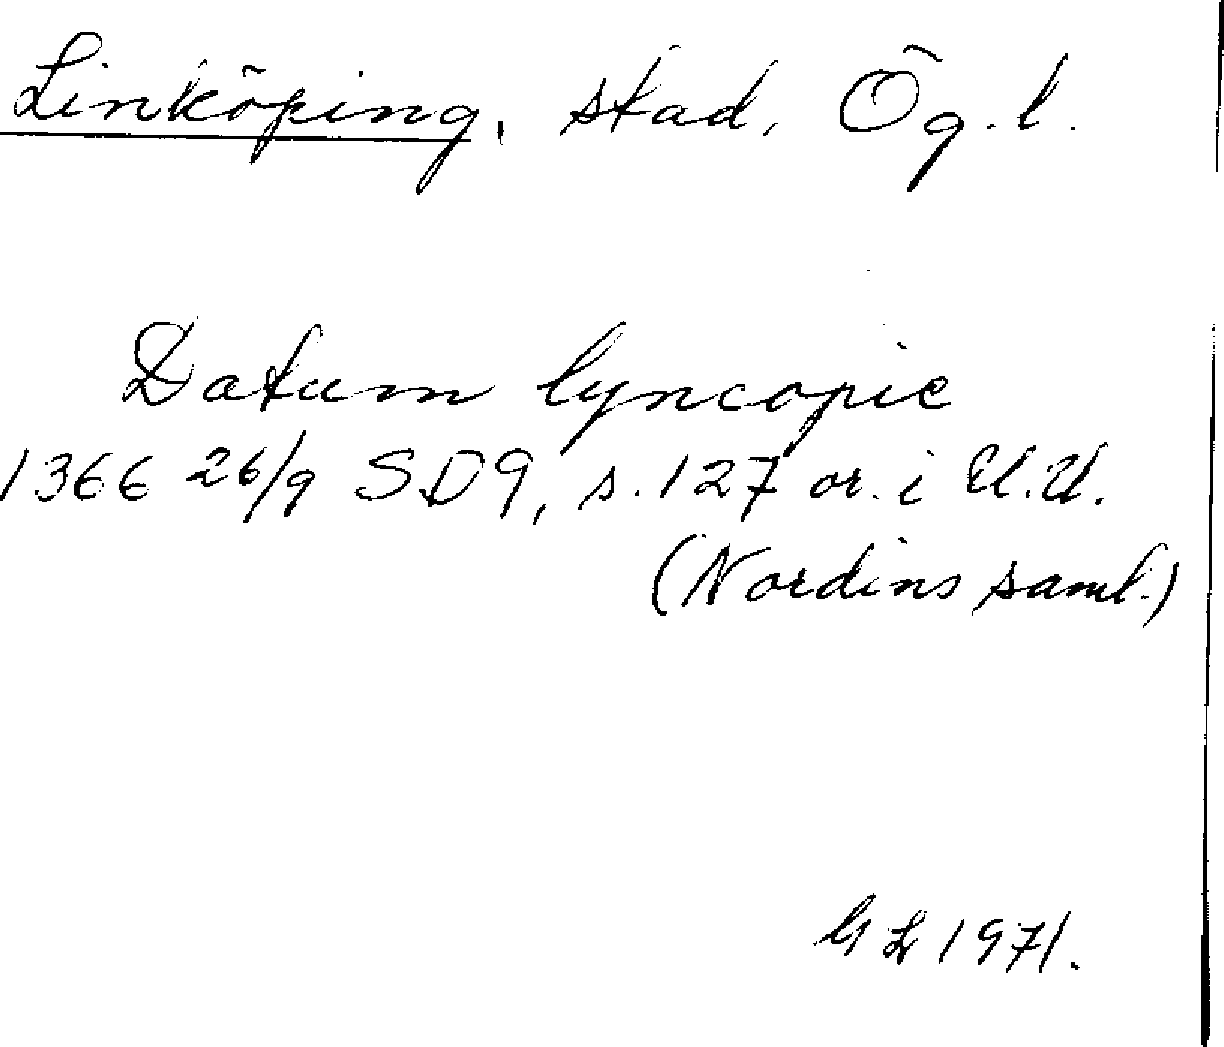 Linköping, stad, Ög. l.
Datum lyncopie
1366 26/9 SD9, s. 127 or. i U.U.
(Nordins saml.)
GL 1971.